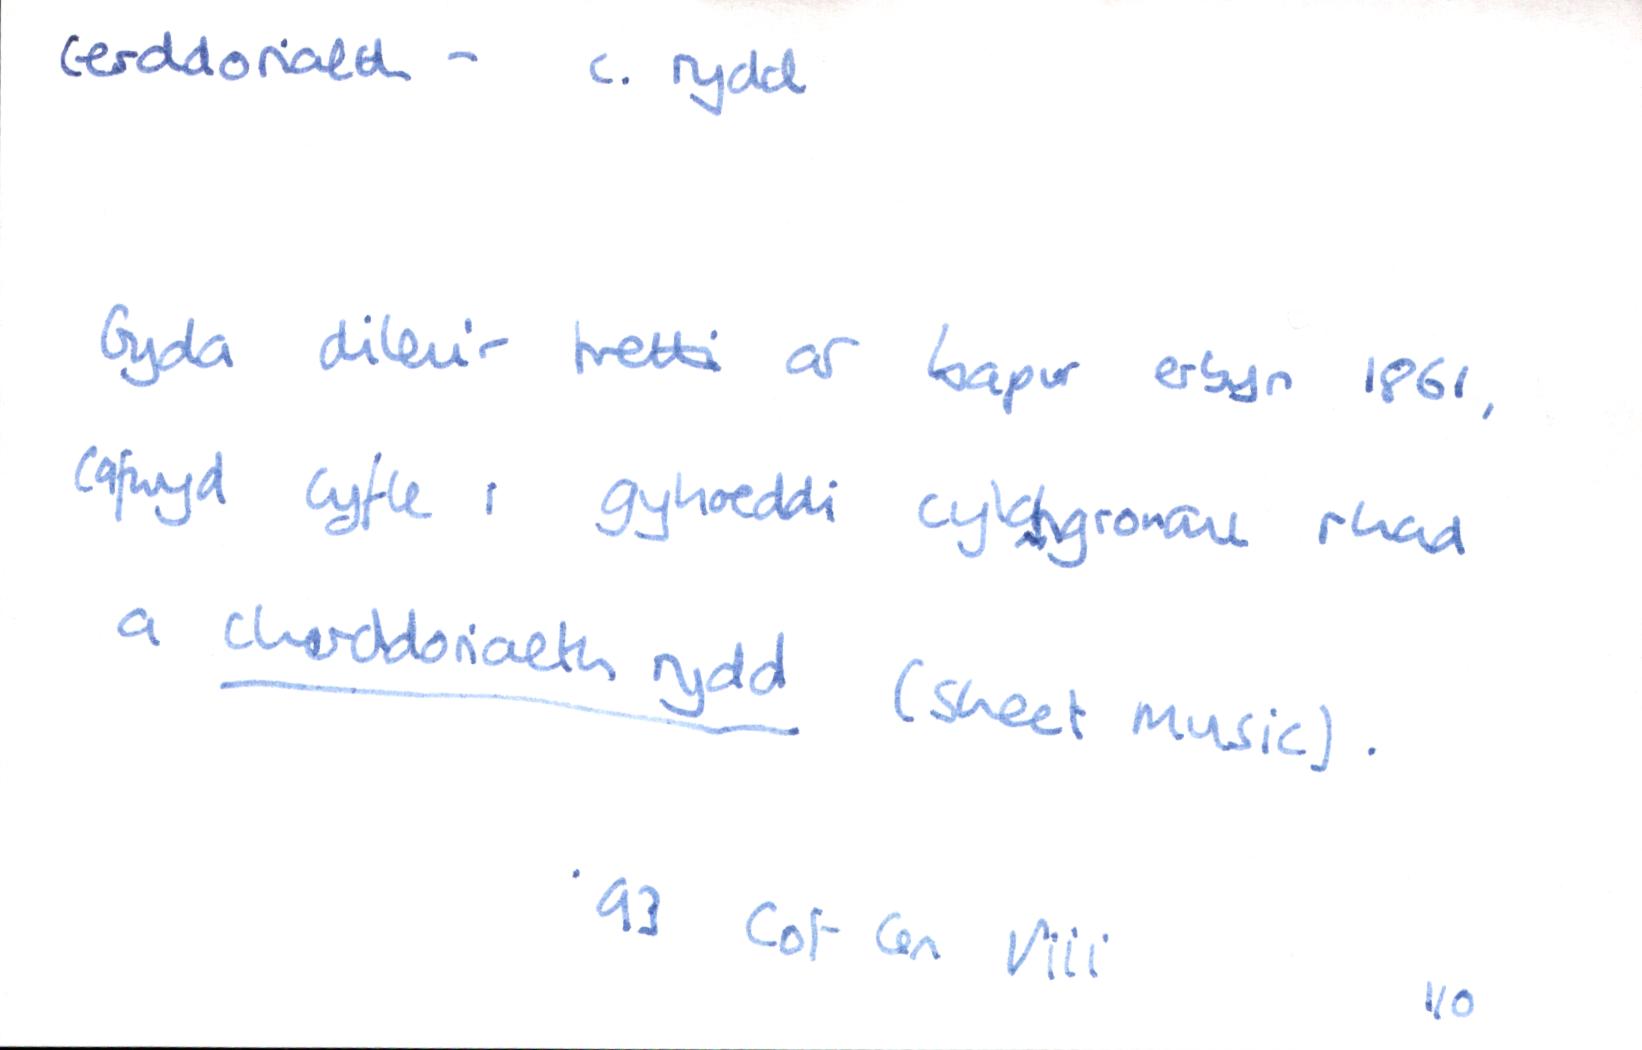 cerddoriaeth - c. rydd
Gyda dileu'r tretti ar bapur erbyn 1861,
cafwyd cyfle i gyhoeddi cylchgronau rhad
a cherddoriaeth rydd (sheet music).
'93 Cof Cen Viii
110